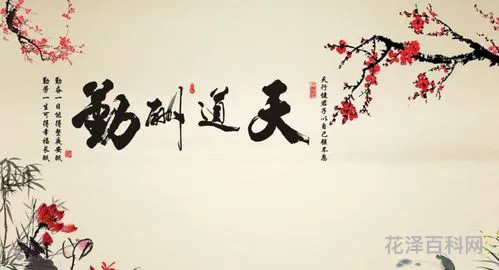 天行健君子以自己强不息
天道酬勤
勤奋一日能得整夜安眠
勤劳一生可得幸福长眠
花泽百科网